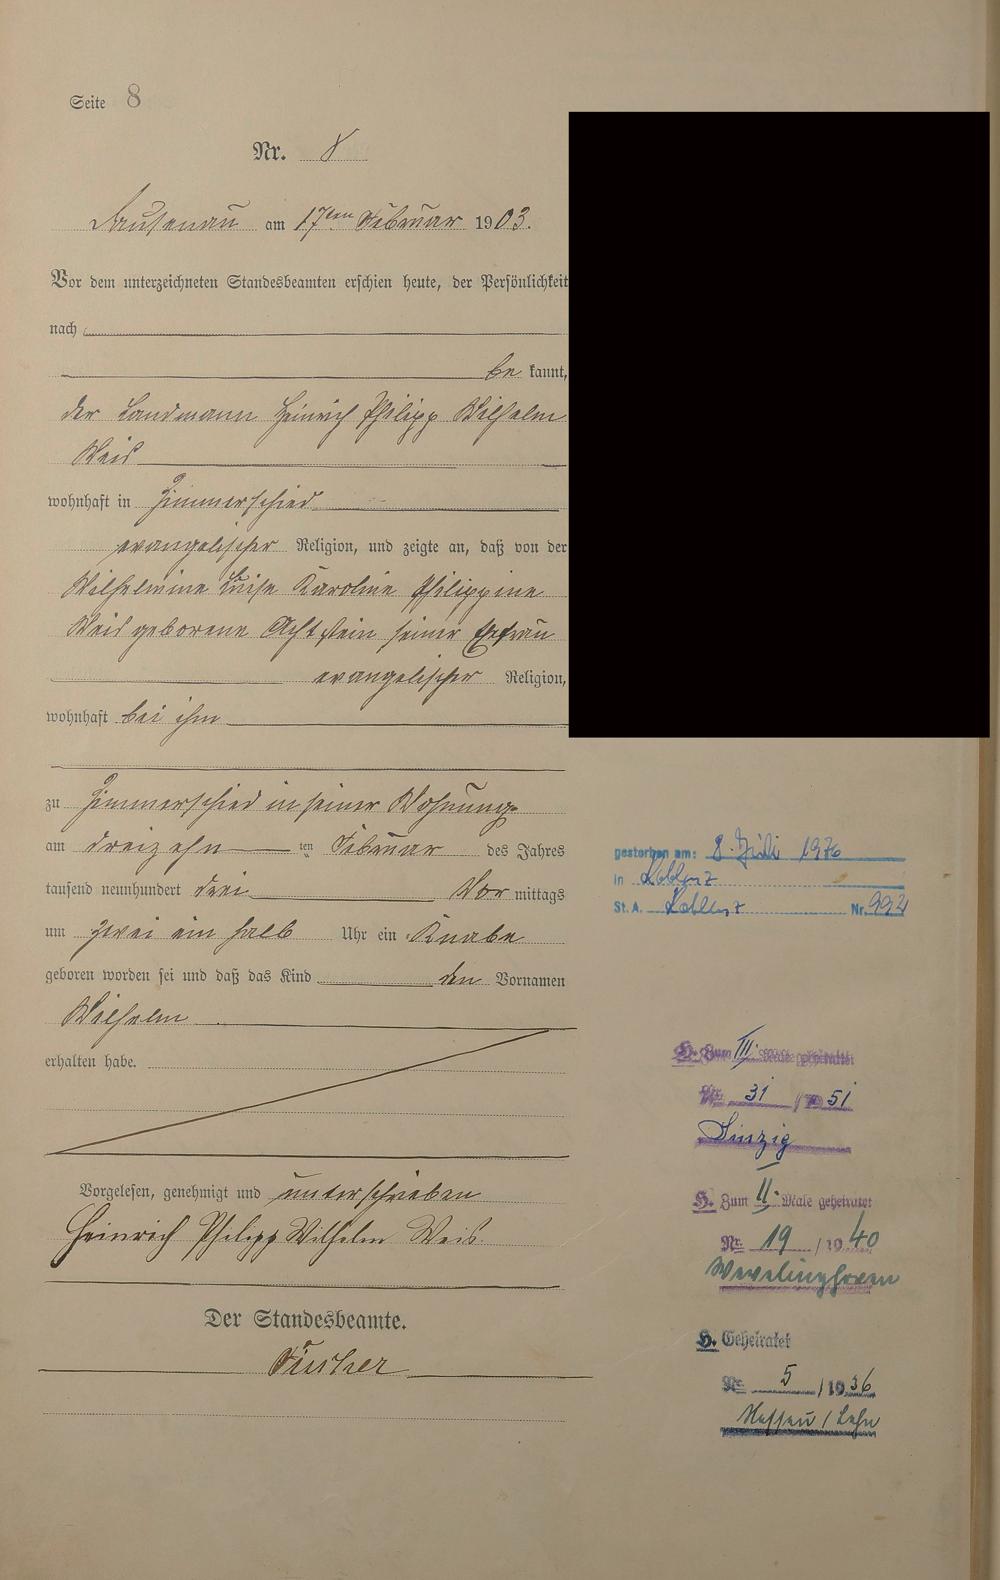 Seite 8
Nr. 8
Dausenau am 17ten Februar 1903.
Vor dem unterzeichneten Standesbeamten erschien heute, der Persönlichkeit
nach
be kannt,
der Landmann Heinrich Philipp Wilhelm
Weis
wohnhaft in Zimmerschied
evangelischer Religion, und zeigte an, daß von der
Wilhelmine Luise Karoline Philippine
Weis geborene Achtstein seiner Ehefrau
evangelischer Religion,
wohnhaft bei ihm
zu Zimmerschied in seiner Wohnung
am dreizehn ten Februar des Jahres
tausend neunhundert drei Vor mittags
um zwei ein halb Uhr ein Knabe
geboren worden sei und daß das Kind den Vornamen
Wilhelm
erhalten habe.
Vorgelesen, genehmigt und unterschrieben
Heinrich Philipp Wilhelm Weis.
Der Standesbeamte.
gestorben am: 8. Juli 1976
in Koblenz
St. A. Koblenz Nr. 992
H. Zum III. Male geheiratet
Nr. 31 / 19 51
Sinzig
H. Zum II. Male geheiratet
Nr. 19 / 1940
Wevelinghoven
H. Geheiratet
Nr. 5 / 1936
Nassau / Lahn